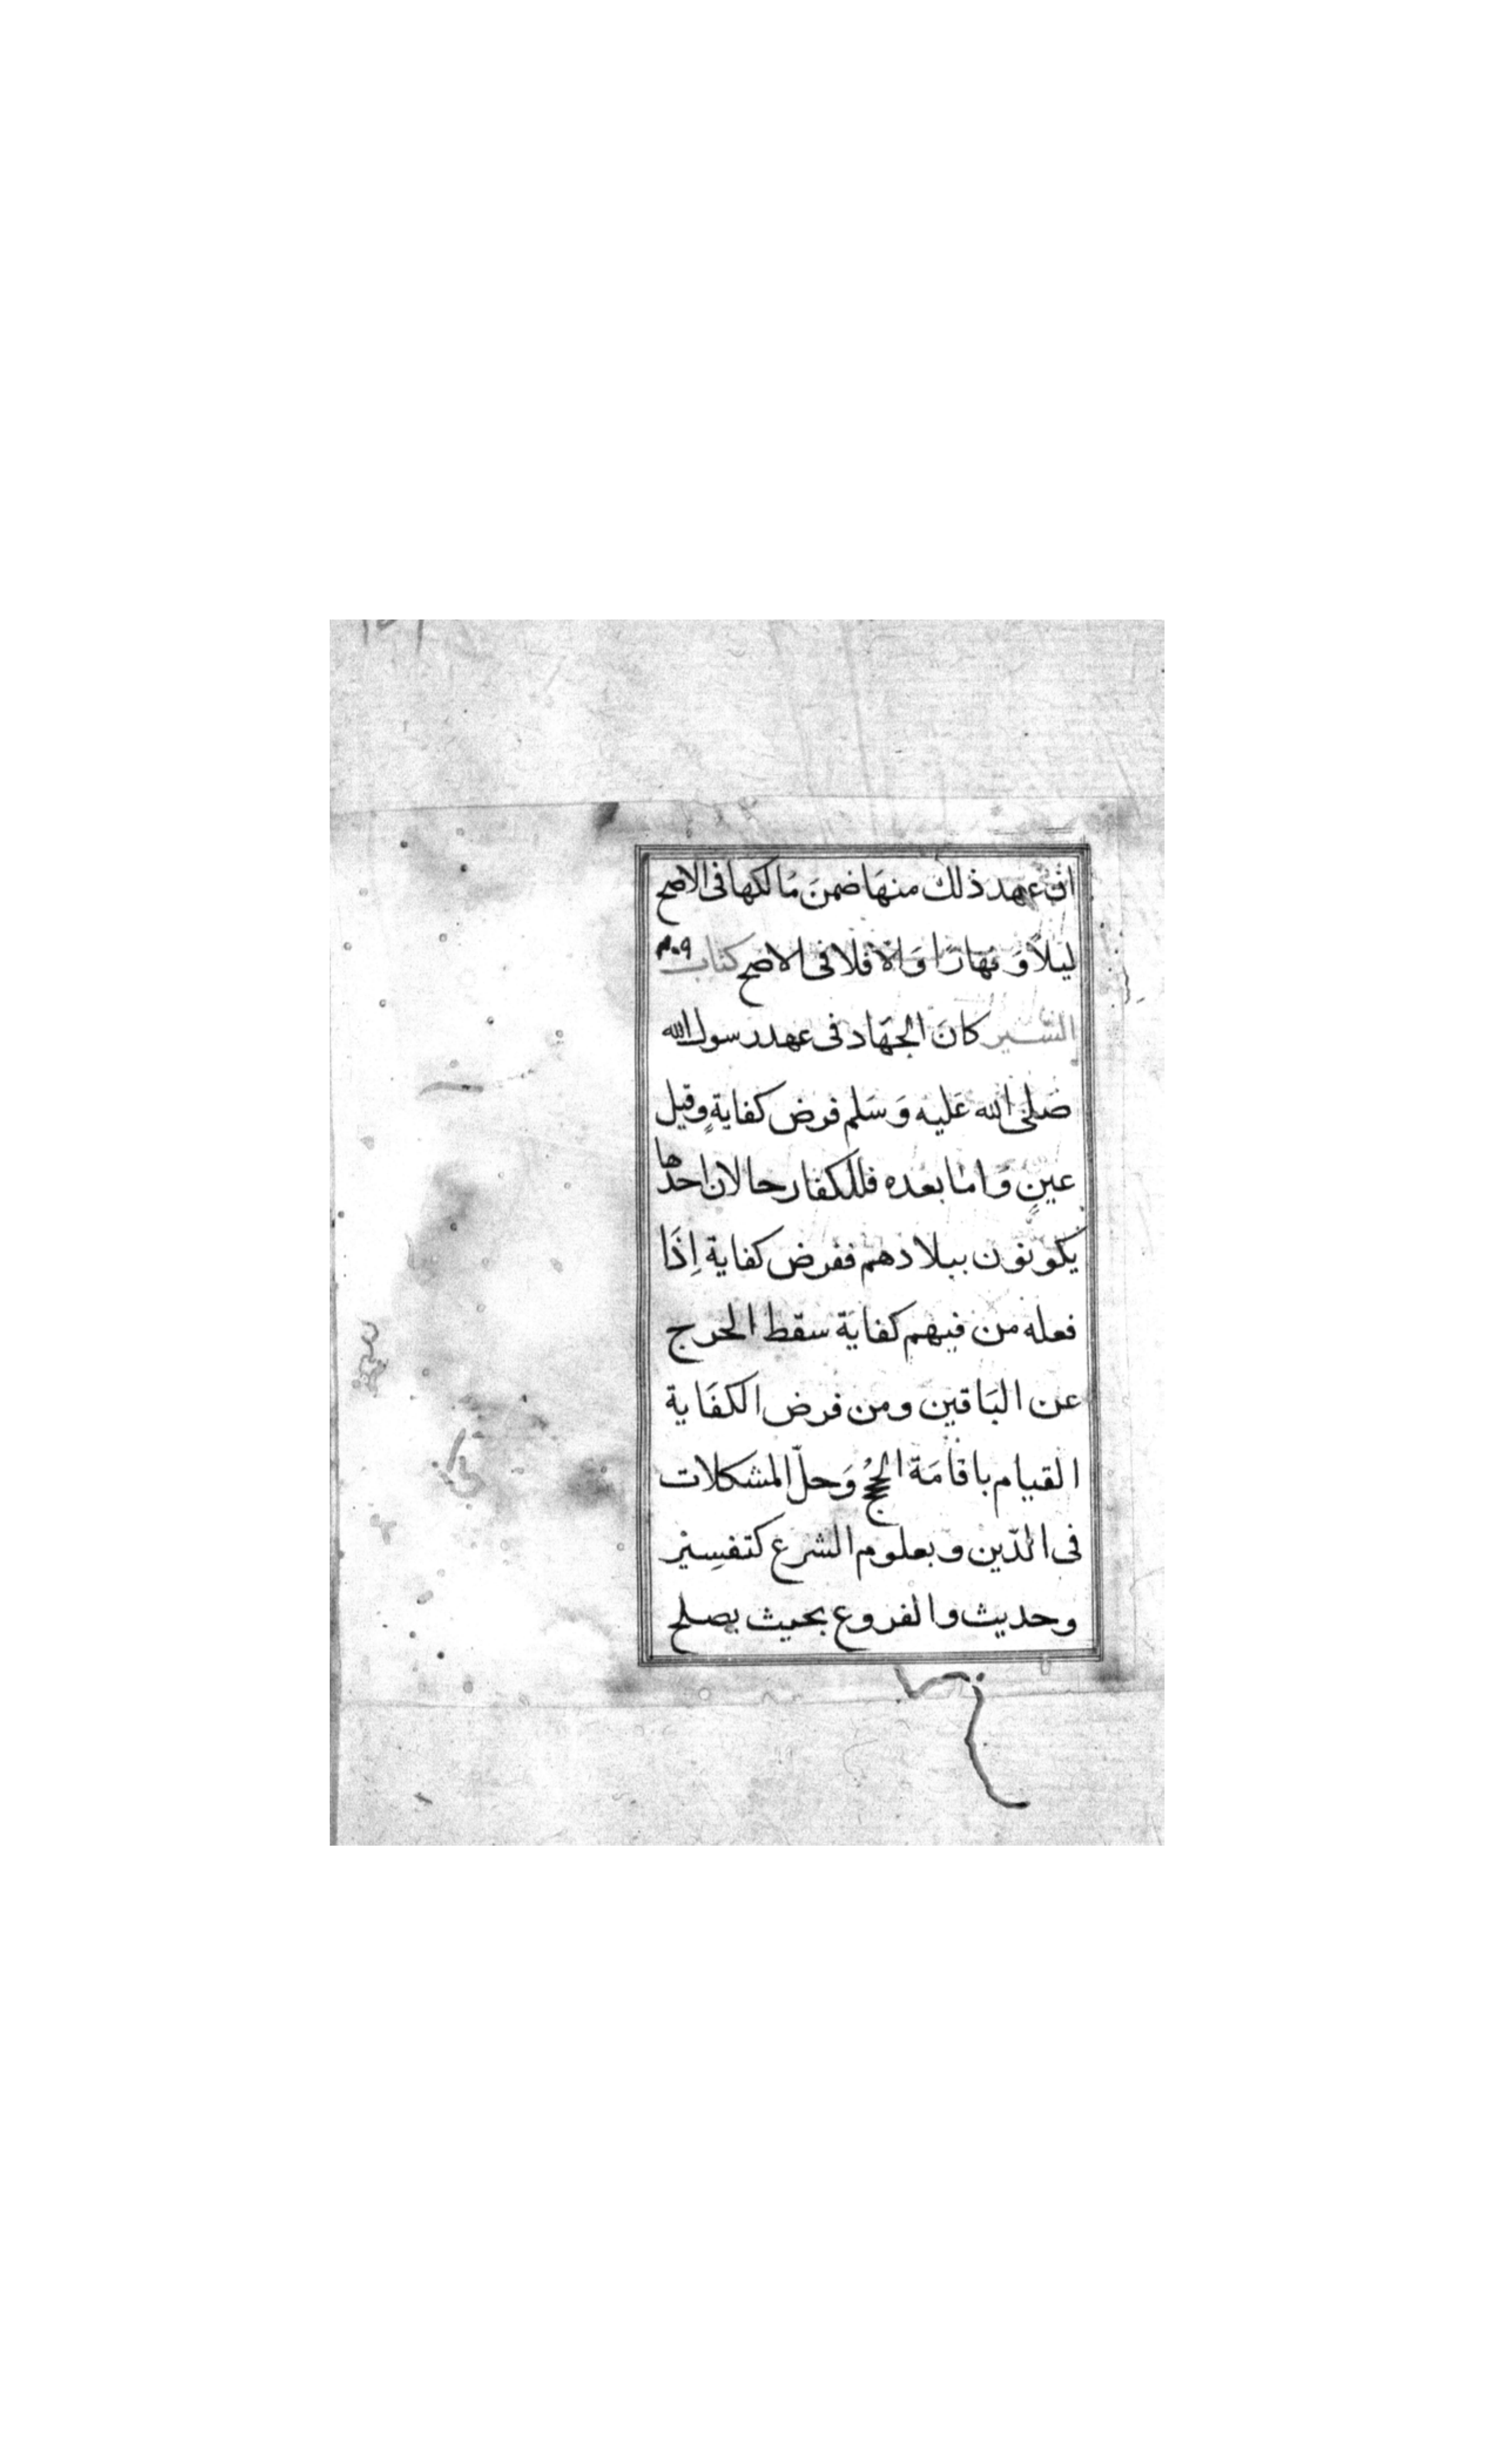 ان عهد ذلك منهَا ضمنَ مَالكها فى الاصح
ليلاً وَ نهارًا وَالا فلا فى الاصح كتاب
السّير كانَ الجهَاد فى عهد رسول الله
صَلى الله عَليه وَسَلم فرض كفايةٍ وقيل
عينٍ وَامّا بعده فللكفار حالان احدها
يكونون ببلادهم ففرض كفاية اِذَا
فعله من فيهم كفايَة سقط الحرج
عن البَاقين ومن فرض الكفَاية
القيام باقامَة الحججُ وَحلّ المشكلات
فى الدّين وبعلوم الشرع كتفسِيْر
وحديث والفروع بحيث يصلح